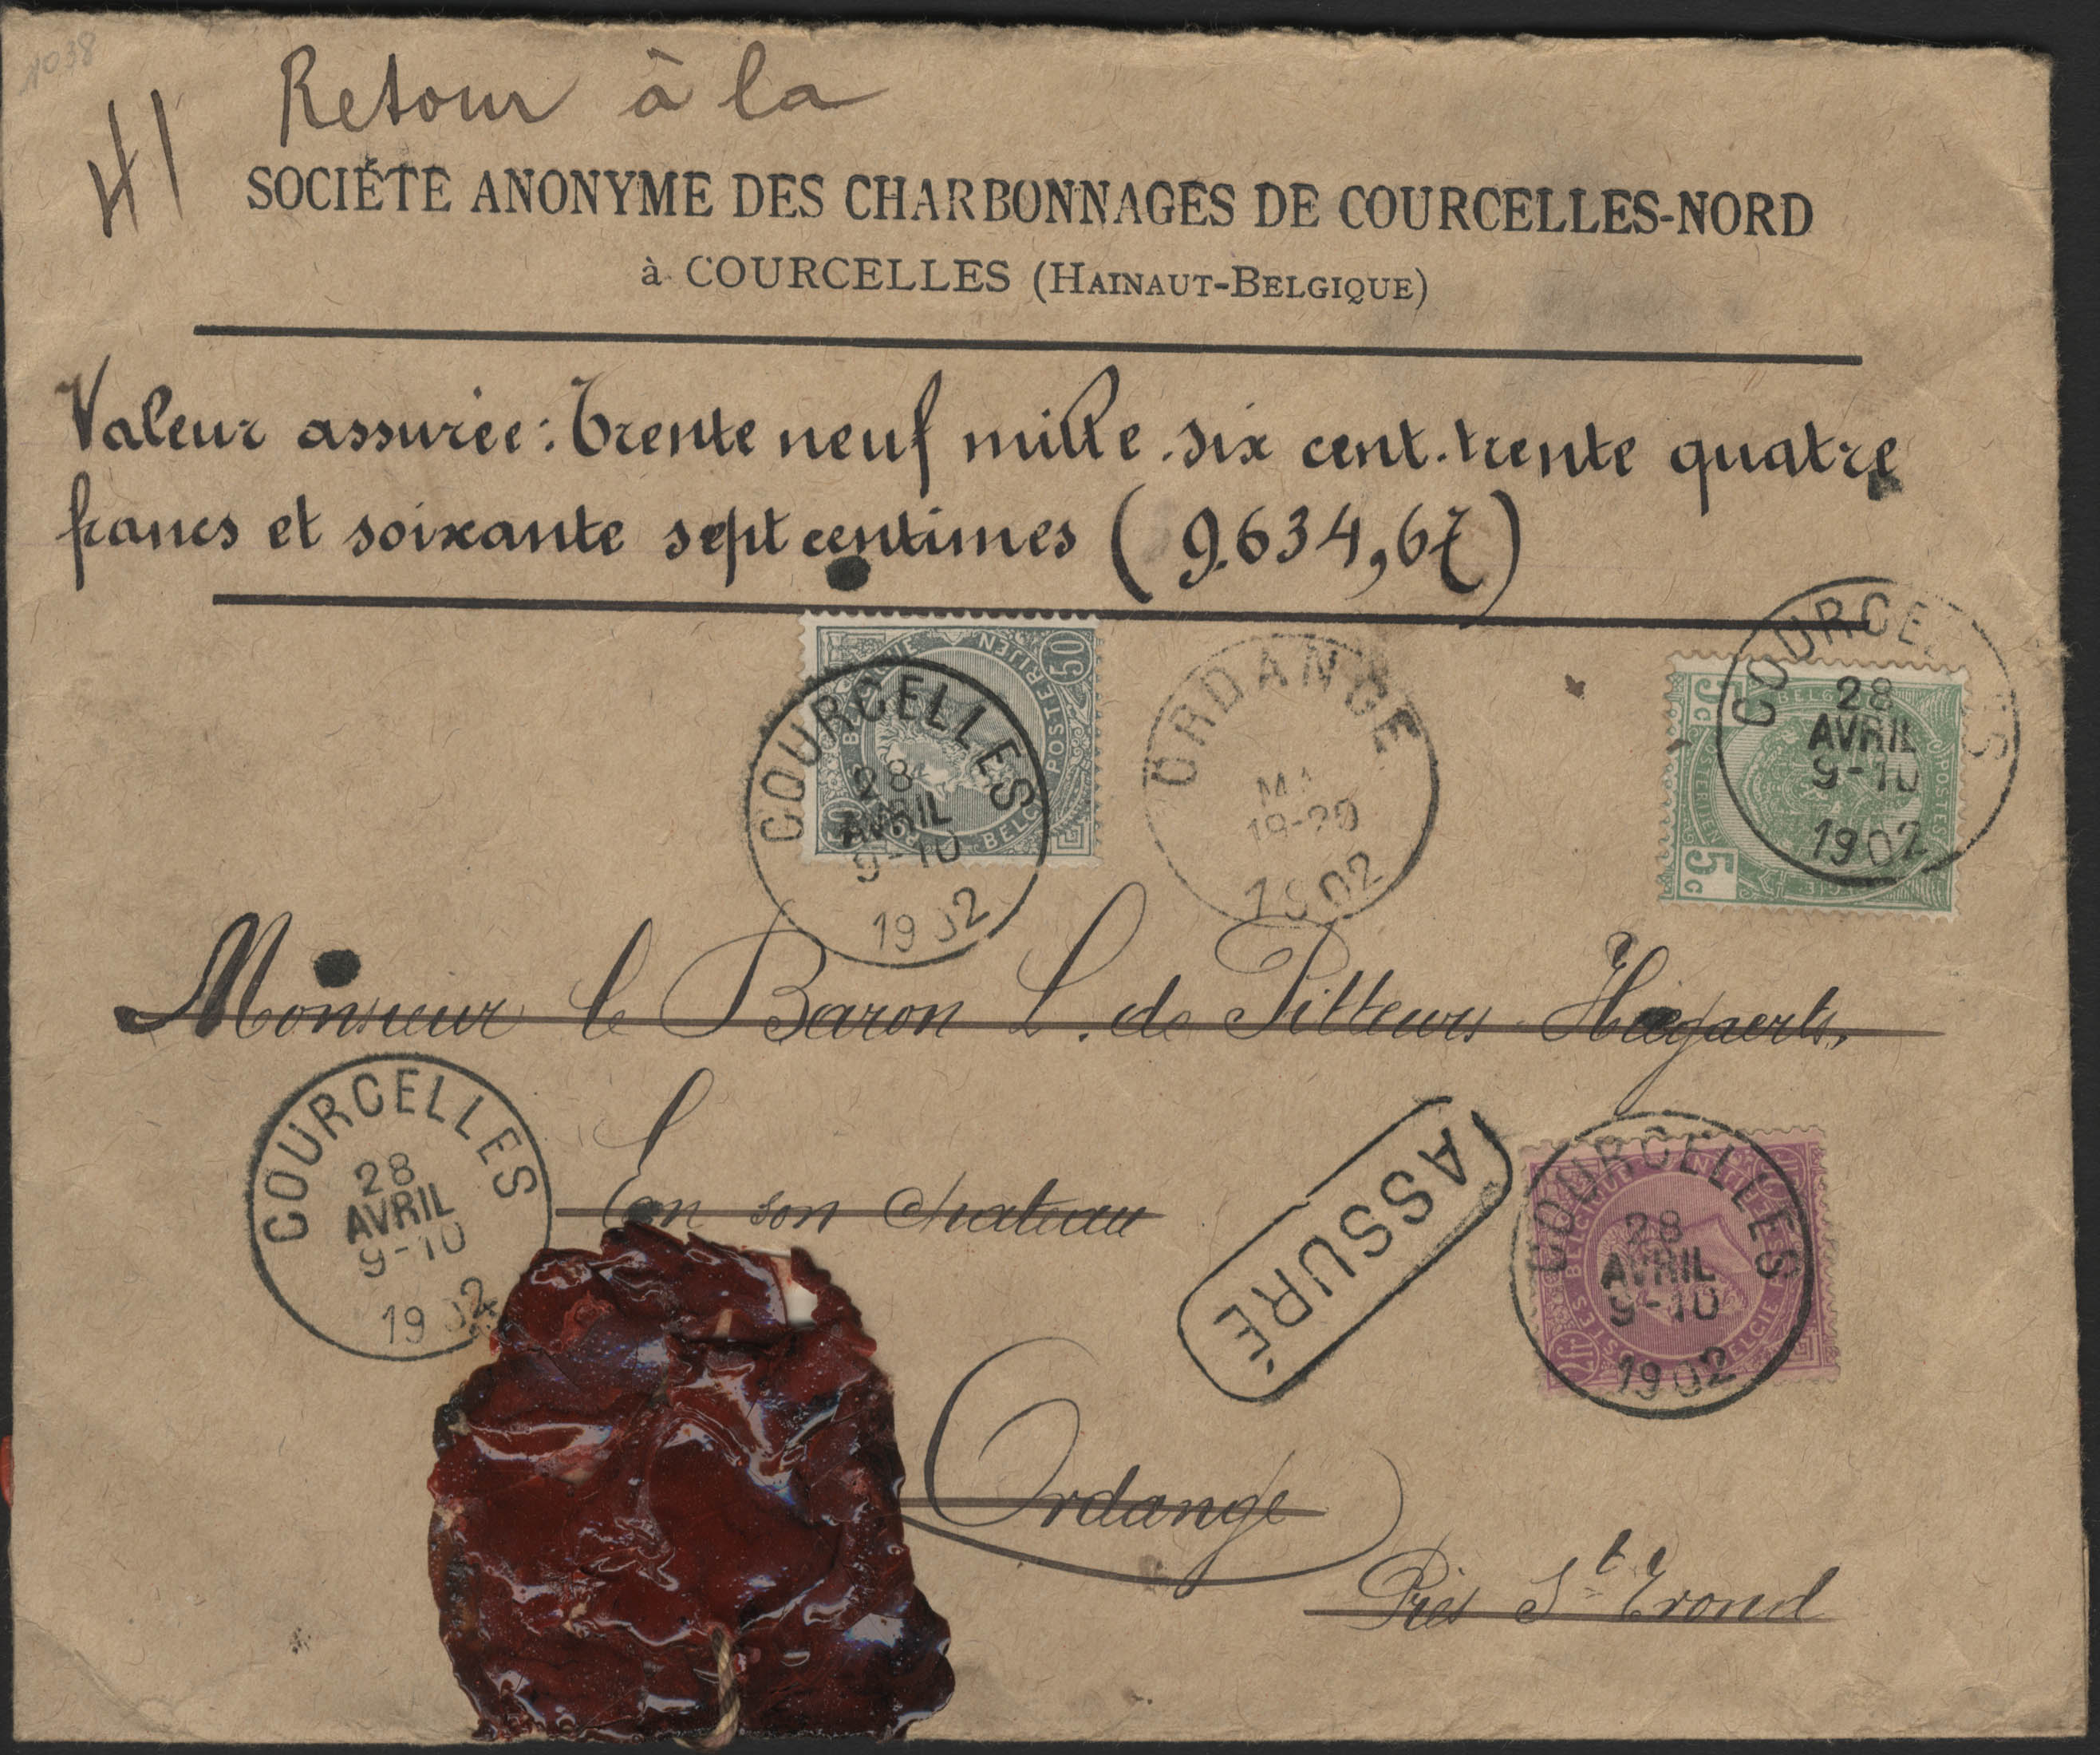 1038
41 Retour à la
SOCIÉTÉ ANONYME DES CHARBONNAGES DE COURCELLES-NORD
à COURCELLES (HAINAUT-BELGIQUE)
Valeur assurée : Trente neuf mille six cent trente quatre
francs et soixante sept centimes ( 9.634,67 )
50
COURCELLES
28
AVRIL
9-10
1902
ORDANGE
19-20
1902
5c
5c
COURCELLES
28
AVRIL
9-10
1902
Monsieur le Baron L. de Pitteurs Hiégaerts,
En son chateau
COURCELLES
28
AVRIL
9-10
1902
ASSURÉ
COURCELLES
28
AVRIL
9-10
1902
Ordange
Près St Trond